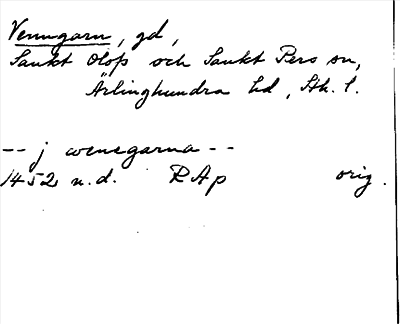 Venngarn, gd,
Sankt Olofs och Sankt Pers sn,
Ärlinghundra hd, Sth. l.
-- j wenegarna --
1452 n.d. RAp orig.